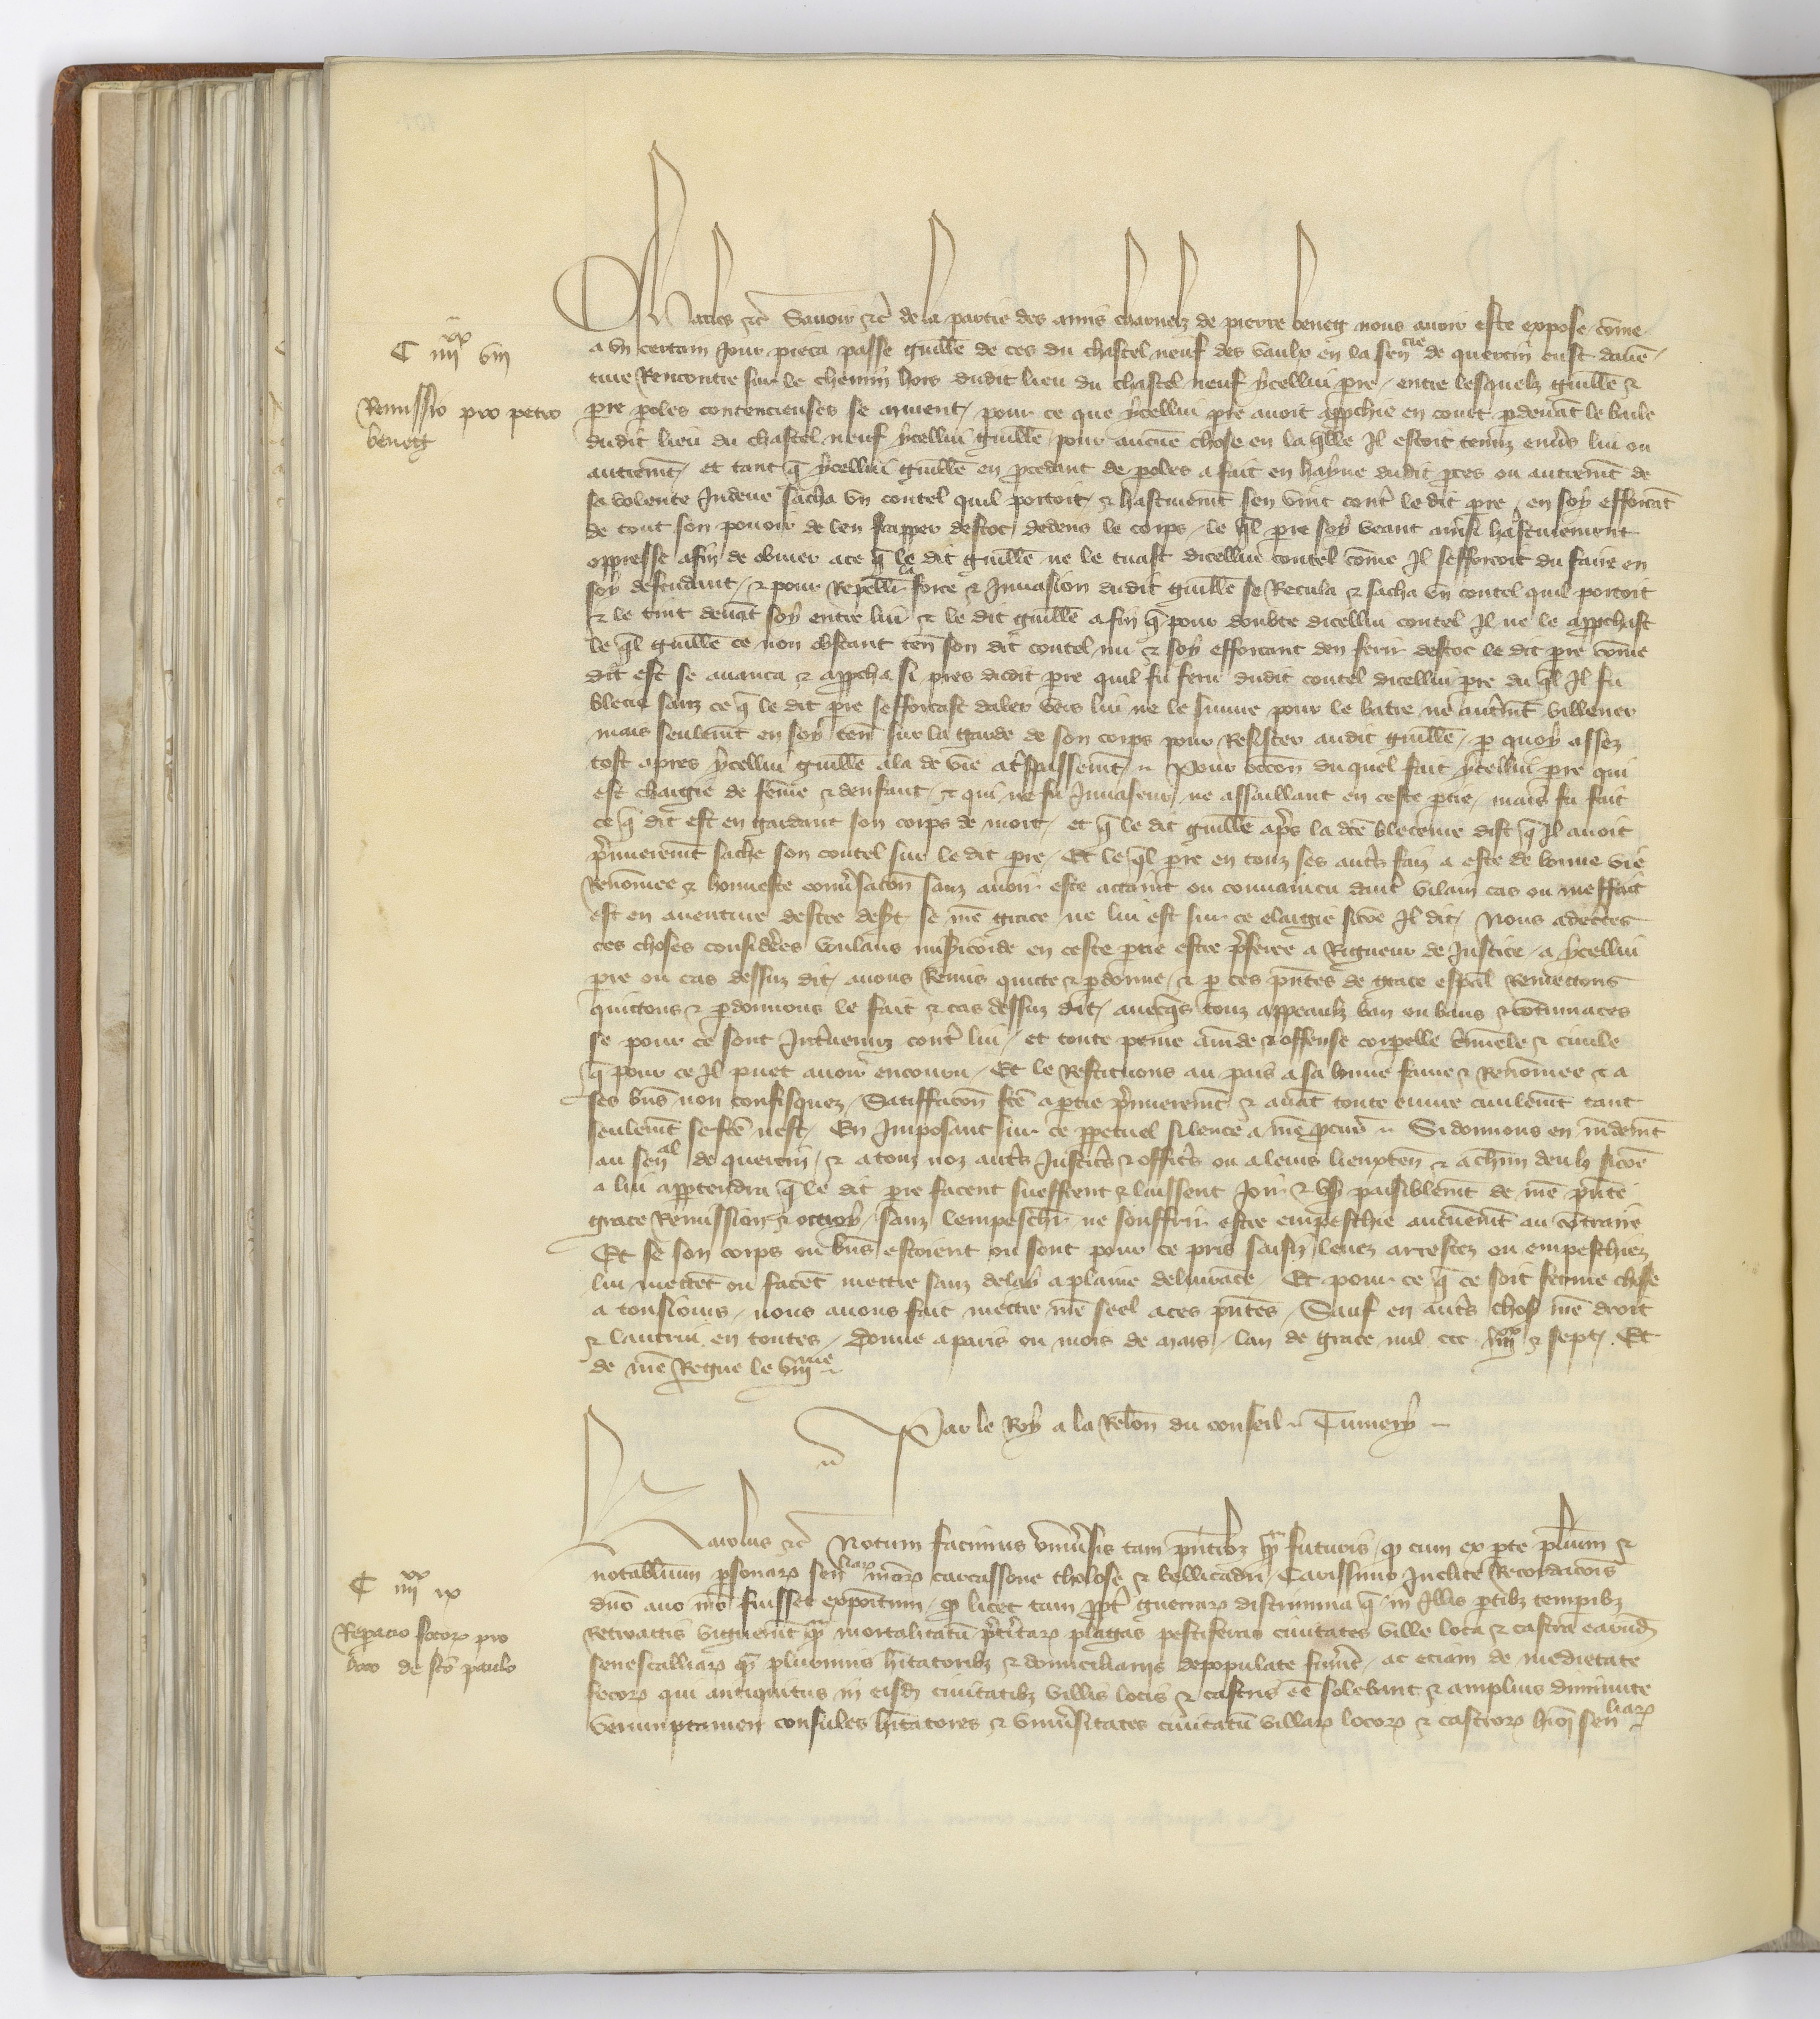 C iiii xx viii
Remissio pro petro
beneg
Charles etc Savoir etc de la partie des amis charnelz de pierre beneg nous avoir este expose come
a un certain Jour pieca passe guille de ces du chastel neuf des vaulx en la sencie de quercin eust daven
ture Rencontre sur le chemin hors dudit lieu du chastel neuf ycellui pre entre lesquelz guille et
pre poles contencieuses se murent pour ce que ycellui pre avoit approchie en court pdevat le baile
dudit lieu du chastel neuf ycellui guille pour aucune chose en la qlle Il estoit tenuz envs lui ou
autremt et tant q ycellui guille en pcedant de poles a fait en hayne dudit pces ou autremt de
sa volente Indeue sacha un coutel quil portoit et hastivemt sen vint contr le dit pre en soy efforcat
de tout son povoir de len frapper destoc dedens le corps le ql pre soy veant ainsi hastivement
oppresse afin de obvier a ce q le dit guille ne le tuast dicellui coutel come Il sefforcoit du faire en
soy defendant et pour Repellir la force et Invasion dudit guille se Recula et sacha un coutel quil portoit
et le tint devat soy entre lui et le dit guille afin q pour doubte dicellui coutel Il ne le approchast
le ql guille ce non obstant ten son dit coutel nu et soy efforcant den ferir destoc le dit pre come
dit est se avanca et approcha si pres dudit pre quil fu feru dudit coutel dicellui pre du ql Il fu
blecie sanz ce q le dit pre sefforcast daler vers lui ne le suivre pour le batre ne autmt villener
mais seulemt en soy ten sur la garde de son corps pour Resister audit guille p quoy assez
tost apres ycellui guille ala de vie a trspassemt Pour occon duquel fait ycellui pre qui
est chargie de feme et denfant et qui ne fu Invaseur ne assaillant en ceste ptie mais fu fait
ce q dit est en gardant son corps de mort et q le dit guille aps la dce bleceure dist q Il avoit
pmierement sache son coutel sur le dit pre Et le ql pre en touz ses autrs faiz a este de bonne vie
Renomee et honneste convsacon sanz avoir este attaint ou convaincu dautr vilain cas ou meffait
est en aventure destre desert se nre grace ne lui est sur ce elargie sicoe Il dit Nous adectes
ces choses considerees voulans misicorde en ceste ptie estre pferee a Rigueur de Justice a ycellui
pre ou cas dessuz dit avons Remis quicte et pdonne et p ces pntes de grace espal Remettons
quittons et pdonnons le fait et cas dessuz dit avecqs touz appeaulx ban ou bans et contumaces
se pour ce sont Intrvenuz contr lui et toute peine amde et offense corporelle criminele et civile
q pour ce Il puet avoir encouru Et le Restituons au pais a sa bonne fame et Renomee et a
ses bns non confisquez Satisffacon fce a ptie pmierement et avat toute euvre civilemt tant
seulemt se fce nest En Imposant sur ce ppetuel silence a nre pcur Si donnons en mdemt
au senal de quercin et a touz noz autrs Justicrs et officrs ou a leurs lieuxten et a chun deulx sicoe
a lui appartendra q le dit pre facent sueffrent et laissent Joir et usr paisiblemt de nre pnte
grace Remission et octroy sanz lempeschr ne souffrir estre empeschie aucunemt au contraire
Et se son corps ou bns estoient ou sont pour ce pris saisiz levez arrestez ou empeschiez
lui mettet ou facet mettre sanz delay a plaine delivrance Et pour ce q ce soit ferme chose
a tousiours nous avons fait mettre nre seel a ces pntes Sauf en autrs choses nre droit
et lautrui en toutes Donne a paris ou mois de mars lan de grace mil ccc iiiixx et sept Et
de nre Regne le viiime
Par le Roy a la Relon du conseil Tumery
C iiii xx ix
Repacio focor pro
loco de sto paulo
Karolus etc Notum facimus univsis tam pntibz qm futuris qd cum ex pte plium et
notabilium psonar senliar nrar carcassone tholose et bellicadri Carissimo Inclite Recordacois
dno avo nro fuisset expositum qd licet tam ppt guerrar discrimina q in Illis ptibz tempibz
retroactis viguerut qm mortalitatu ptitar plagas pestiferas civitates ville loca et castra earud
senescalliar qm plurimis hitatoribz et domiciliariis depopulate fuert ac eciam de medietate
focor qui antiquitus in eisd civitatibz villis locis et castris ee solebant et amplius diminute
Verumptamen consules hitatores et univsitates civitatu villar locor et castror hioi senliar